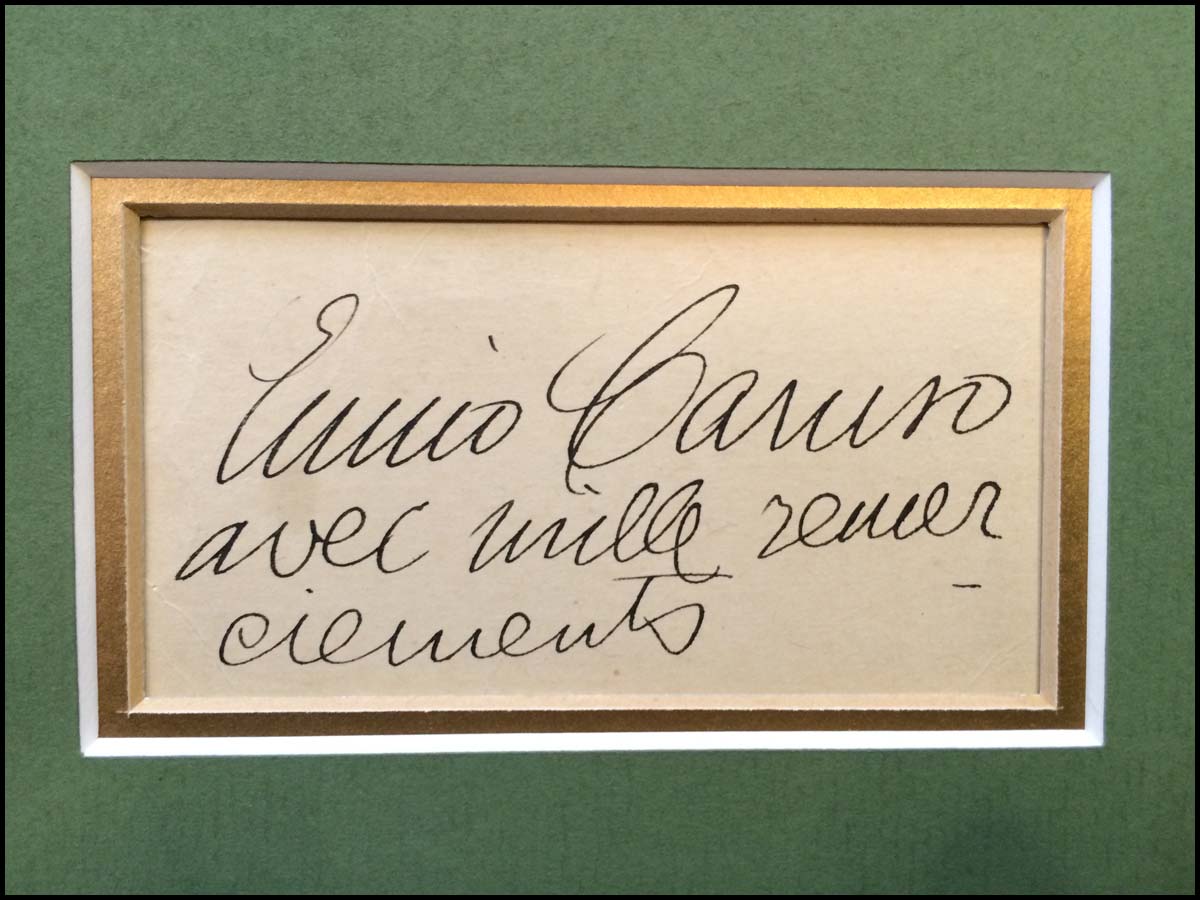 Enrico Caruso
avec mille remer-
ciements